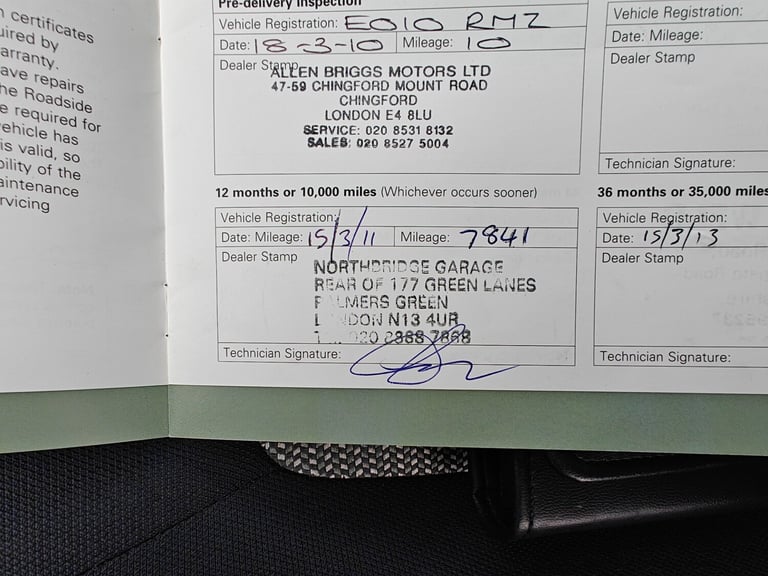 n certificates
uired by
arranty.
ave repairs
he Roadside
e required for
vehicle has
is valid, so
bility of the
aintenance
rvicing
Pre-delivery inspection
Vehicle Registration: EO10 RMZ
Date: 18-3-10 Mileage: 10
Dealer Stamp
ALLEN BRIGGS MOTORS LTD
47-59 CHINGFORD MOUNT ROAD
CHINGFORD
LONDON E4 8LU
SERVICE: 020 8531 8132
SALES: 020 8527 5004
12 months or 10,000 miles (Whichever occurs sooner)
Vehicle Registration:
Date: Mileage: 15/3/11 Mileage: 7841
Dealer Stamp
NORTHBRIDGE GARAGE
REAR OF 177 GREEN LANES
P LMERS GREEN
L NDON N13 4UR
T 020 8888 7868
Technician Signature:
Vehicle Registration:
Date: Mileage:
Dealer Stamp
Technician Signature:
36 months or 35,000 miles
Vehicle Registration:
Date: 15/3/13
Dealer Stamp
Technician Signature: